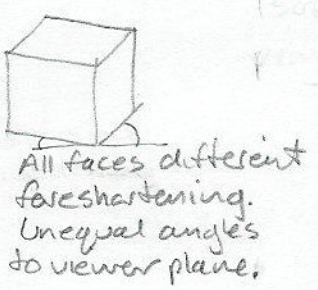 All faces different
foreshortening.
Unequal angles
to viewer plane.